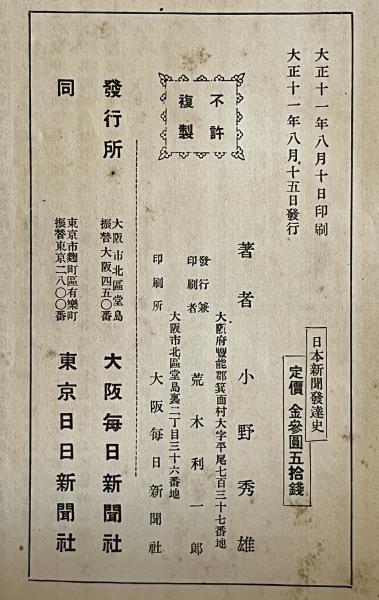 大正十一年八月十日印刷
大正十一年八月十五日發行
日本新聞發達史
定價 金參圓五拾錢
不許
複製
著者 小野秀雄
大阪府豐能郡箕面村大字平尾七百三十七番地
發行兼
印刷者 荒木利一郎
大阪市北區堂島裏二丁目三十六番地
印刷所 大阪每日新聞社
發行所 大阪市北區堂島
振替大阪四五〇番 大阪每日新聞社
同 東京市麴町區有樂町
振替東京二八〇〇番 東京日日新聞社